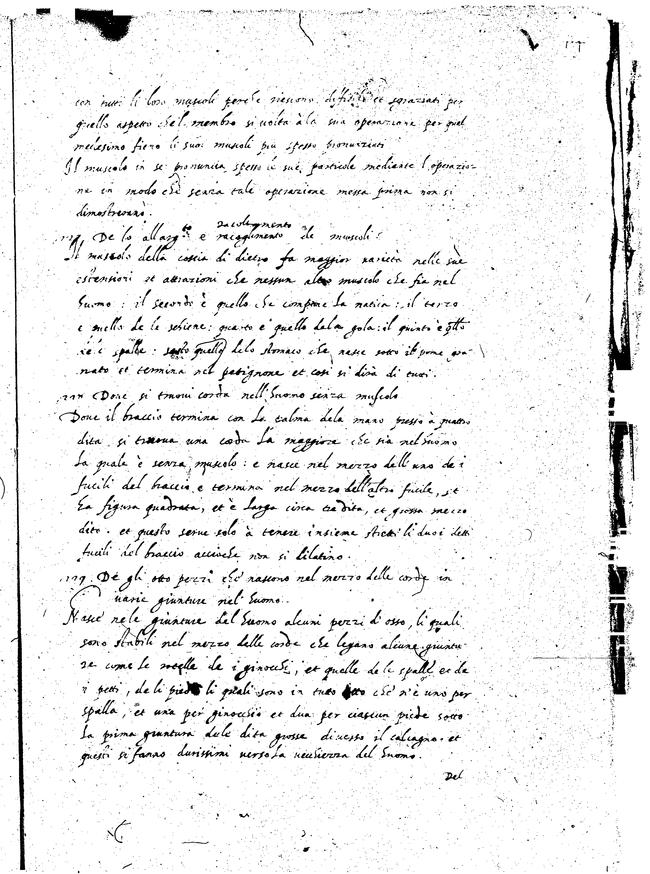 con tutti li loro muscoli perche riescono difficili et sgraziati per
quello aspetto che'l membro si volta à la sua operazione per quel
medesimo fiero li suoi muscoli piu spesso pronunziati
Il muscolo in se pronuncia spesso le sue particole mediante l'operazio-
ne in modo che senza tale operazione messa prima non si
dimostrerano.
De lo allarg.to e raccoglimento de muscoli
racolgimento
Il muscolo della coscia di dietro fa maggior varietà nelle sue
estensioni et attrazioni che nessun altro muscolo che sia nel
huomo : il secondo è quello che compone la natica : il terzo
e quello de le schiene : quarto e' quello dela gola : il quinto e' qllo
de le spalle : sesto quello delo stomaco che nasce sotto il pome gra-
nato et termina nel petignone et così si dirà di tutti .
Dove si truovi corda nell'huomo senza muscolo
Dove il braccio termina con la palma dela mano presso à quattro
dita . si truova una corda la maggiore che sia nel huomo
la quale è senza muscolo : e nasce nel mezzo dell'uno dei
fucili del braccio e termina nel mezzo dell'altro fucile, et
ha figura quadrata, et è larga circa tre dita, et grossa mezzo
dito . et questo serve solo à tenere insieme stretti li duoi detti
fucili del braccio accioche non si dilatino .
229 . De gli otto pezzi che nascono nel mezzo delle corde in
varie giunture nel huomo .
Nasce ne le giunture del huomo alcuni pezzi di osso, li quali
sono stabili nel mezzo delle corde che legano alcune giuntu-
re come le rotelle de i ginocchi, et quelle de le spalle et de
i petti, de li piedi li quali sono in tutto otto che n'è uno per
spalla, et una per ginocchio et dua per ciascun piede sotto
la prima giuntura dele dita grosse di verso il calcagno . et
questi si fanno durissimi verso la vecchiezza del huomo .
Del